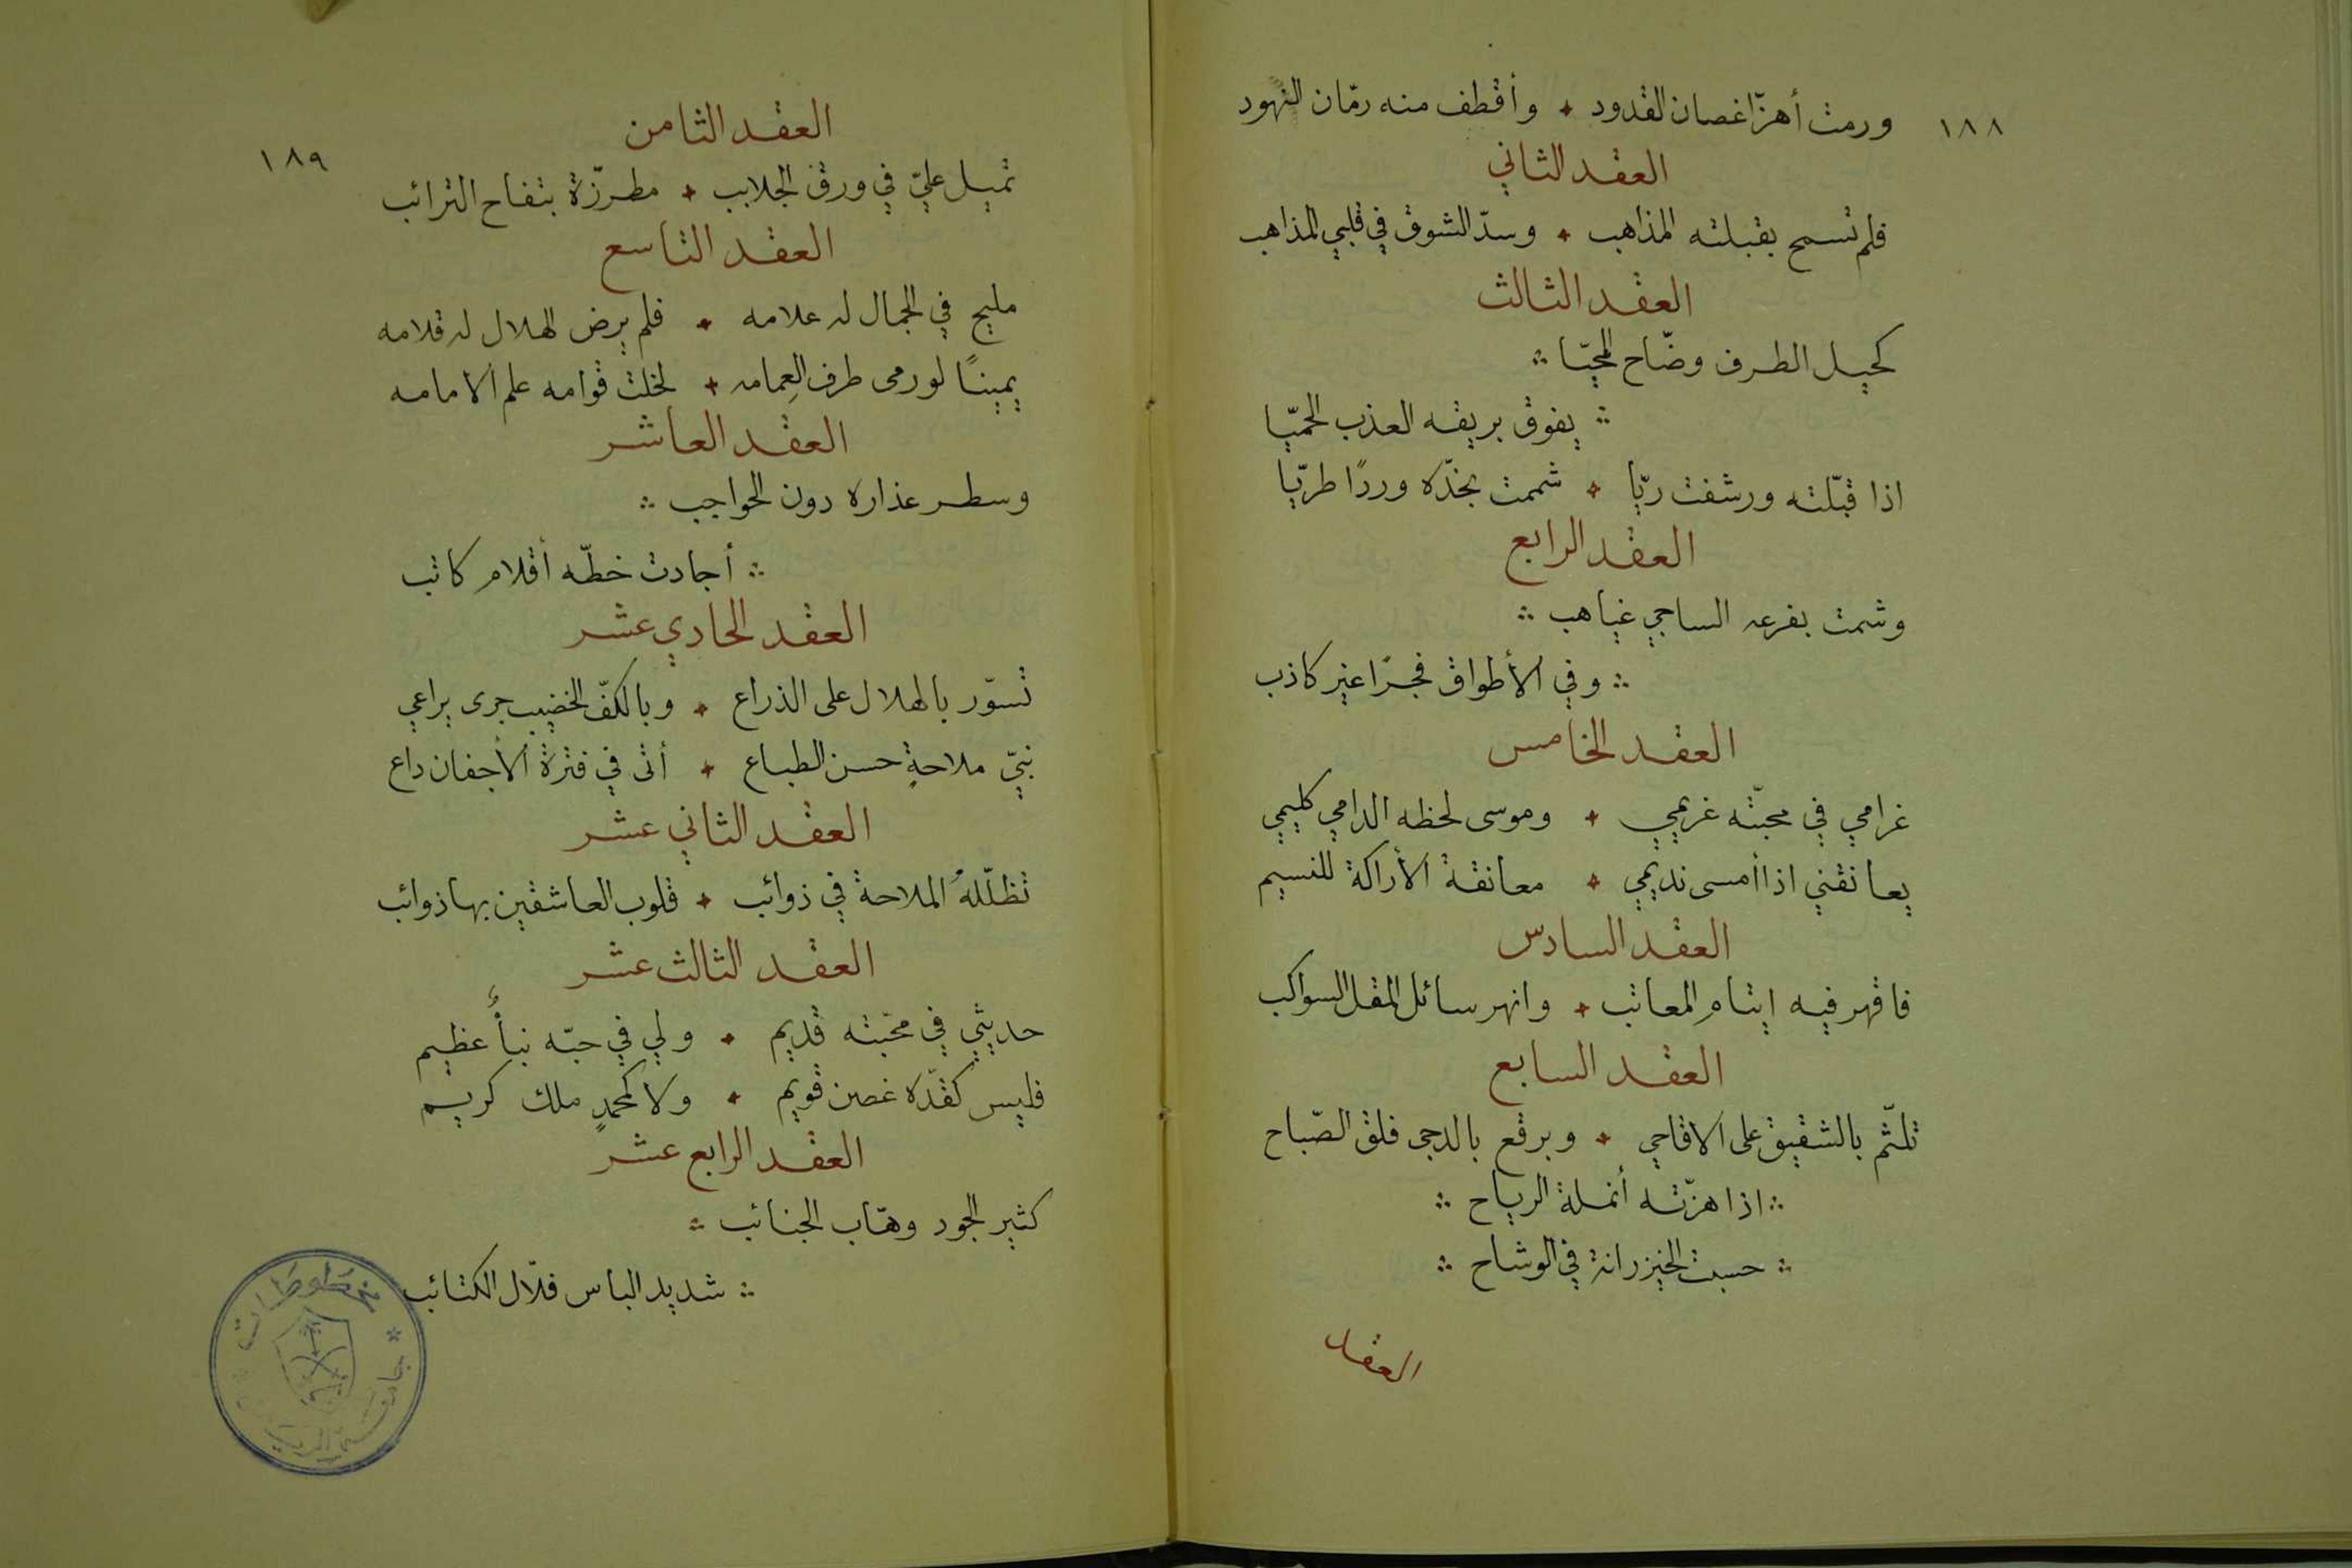 ١٨٨
ورمت أهزّ اغصان القدود ٭ وأقطف منه رمّان النهود
العقد الثاني
فلم تسمح بقبلته المذاهب ٭ وسدّ الشوق في قلبي المذاهب
العقد الثالث
كحيل الطرف وضّاح المحيّا ∴
∴ يفوق بريقه العذب الحميّا
اذا قبّلته ورشفت ريّا ٭ شممت بخدّه وردًا طريّا
العقد الرابع
وشمت بفرعه الساجي غياهب ∴
∴ وفي الأطواق فجرًا غير كاذب
العقد الخامس
غرامي في محبّته غريمي ٭ وموسى لحظه الدامي كليمي
يعانقني اذا أمسى نديمي ٭ معانقة الأراكة للنسيم
العقد السادس
فاقهر فيه ايتام المعاتب ٭ وانهر سائل المقل السواكب
العقد السابع
تلثّم بالشقيق على الاقاحي ٭ وبرقع بالدجى فلق الصّباح
∴ اذا هزّته أنملة الرياح ∴
∴ حسبت الخيزرانة في الوشاح ∴
العقد
١٨٩
العقد الثامن
تميل عليّ في ورق الجلابب ٭ مطرزّة بتفاح الترائب
العقد التاسع
مليح في الجمال له علامه ٭ فلم يرض الهلال له قلامه
يمينًا لو رمى طرف العِمامه ٭ لخلت قوامه علم الامامه
العقد العاشر
وسطر عذاره دون الحواجب ∴
∴ أجادت خطّه أقلام كاتب
العقد الحادي عشر
تسوّر بالهلال على الذراع ٭ وبالكفّ الخضيب جرى يراعي
نبيّ ملاحةٍ حسن الطباع ٭ أتى في فترة الأجفان داع
العقد الثاني عشر
تظلّلهُ الملاحة في ذوائب ٭ قلوب العاشقين بها ذوائب
العقد الثالث عشر
حديثي في محبّته قديم ٭ ولي في حبّه نبأٌ عظيم
فليس كقدّه غصن قويم ٭ ولا كمحمدٍ ملك كريم
العقد الرابع عشر
كثير الجود وهّاب الجنائب ∴
∴ شديد الباس فلّال الكتائب
مخطوطات
جامعة